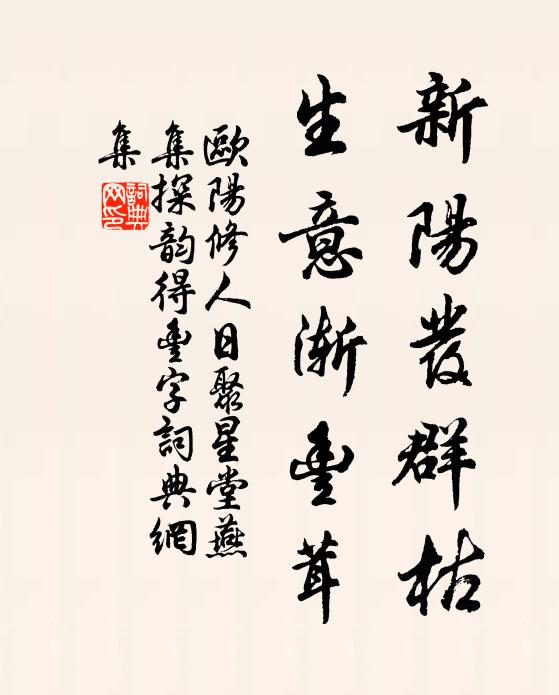 新陽發群枯
生意漸豐茸
歐陽修人日聚星堂燕
集探韵得豐字詞典網
集
詞典
网印